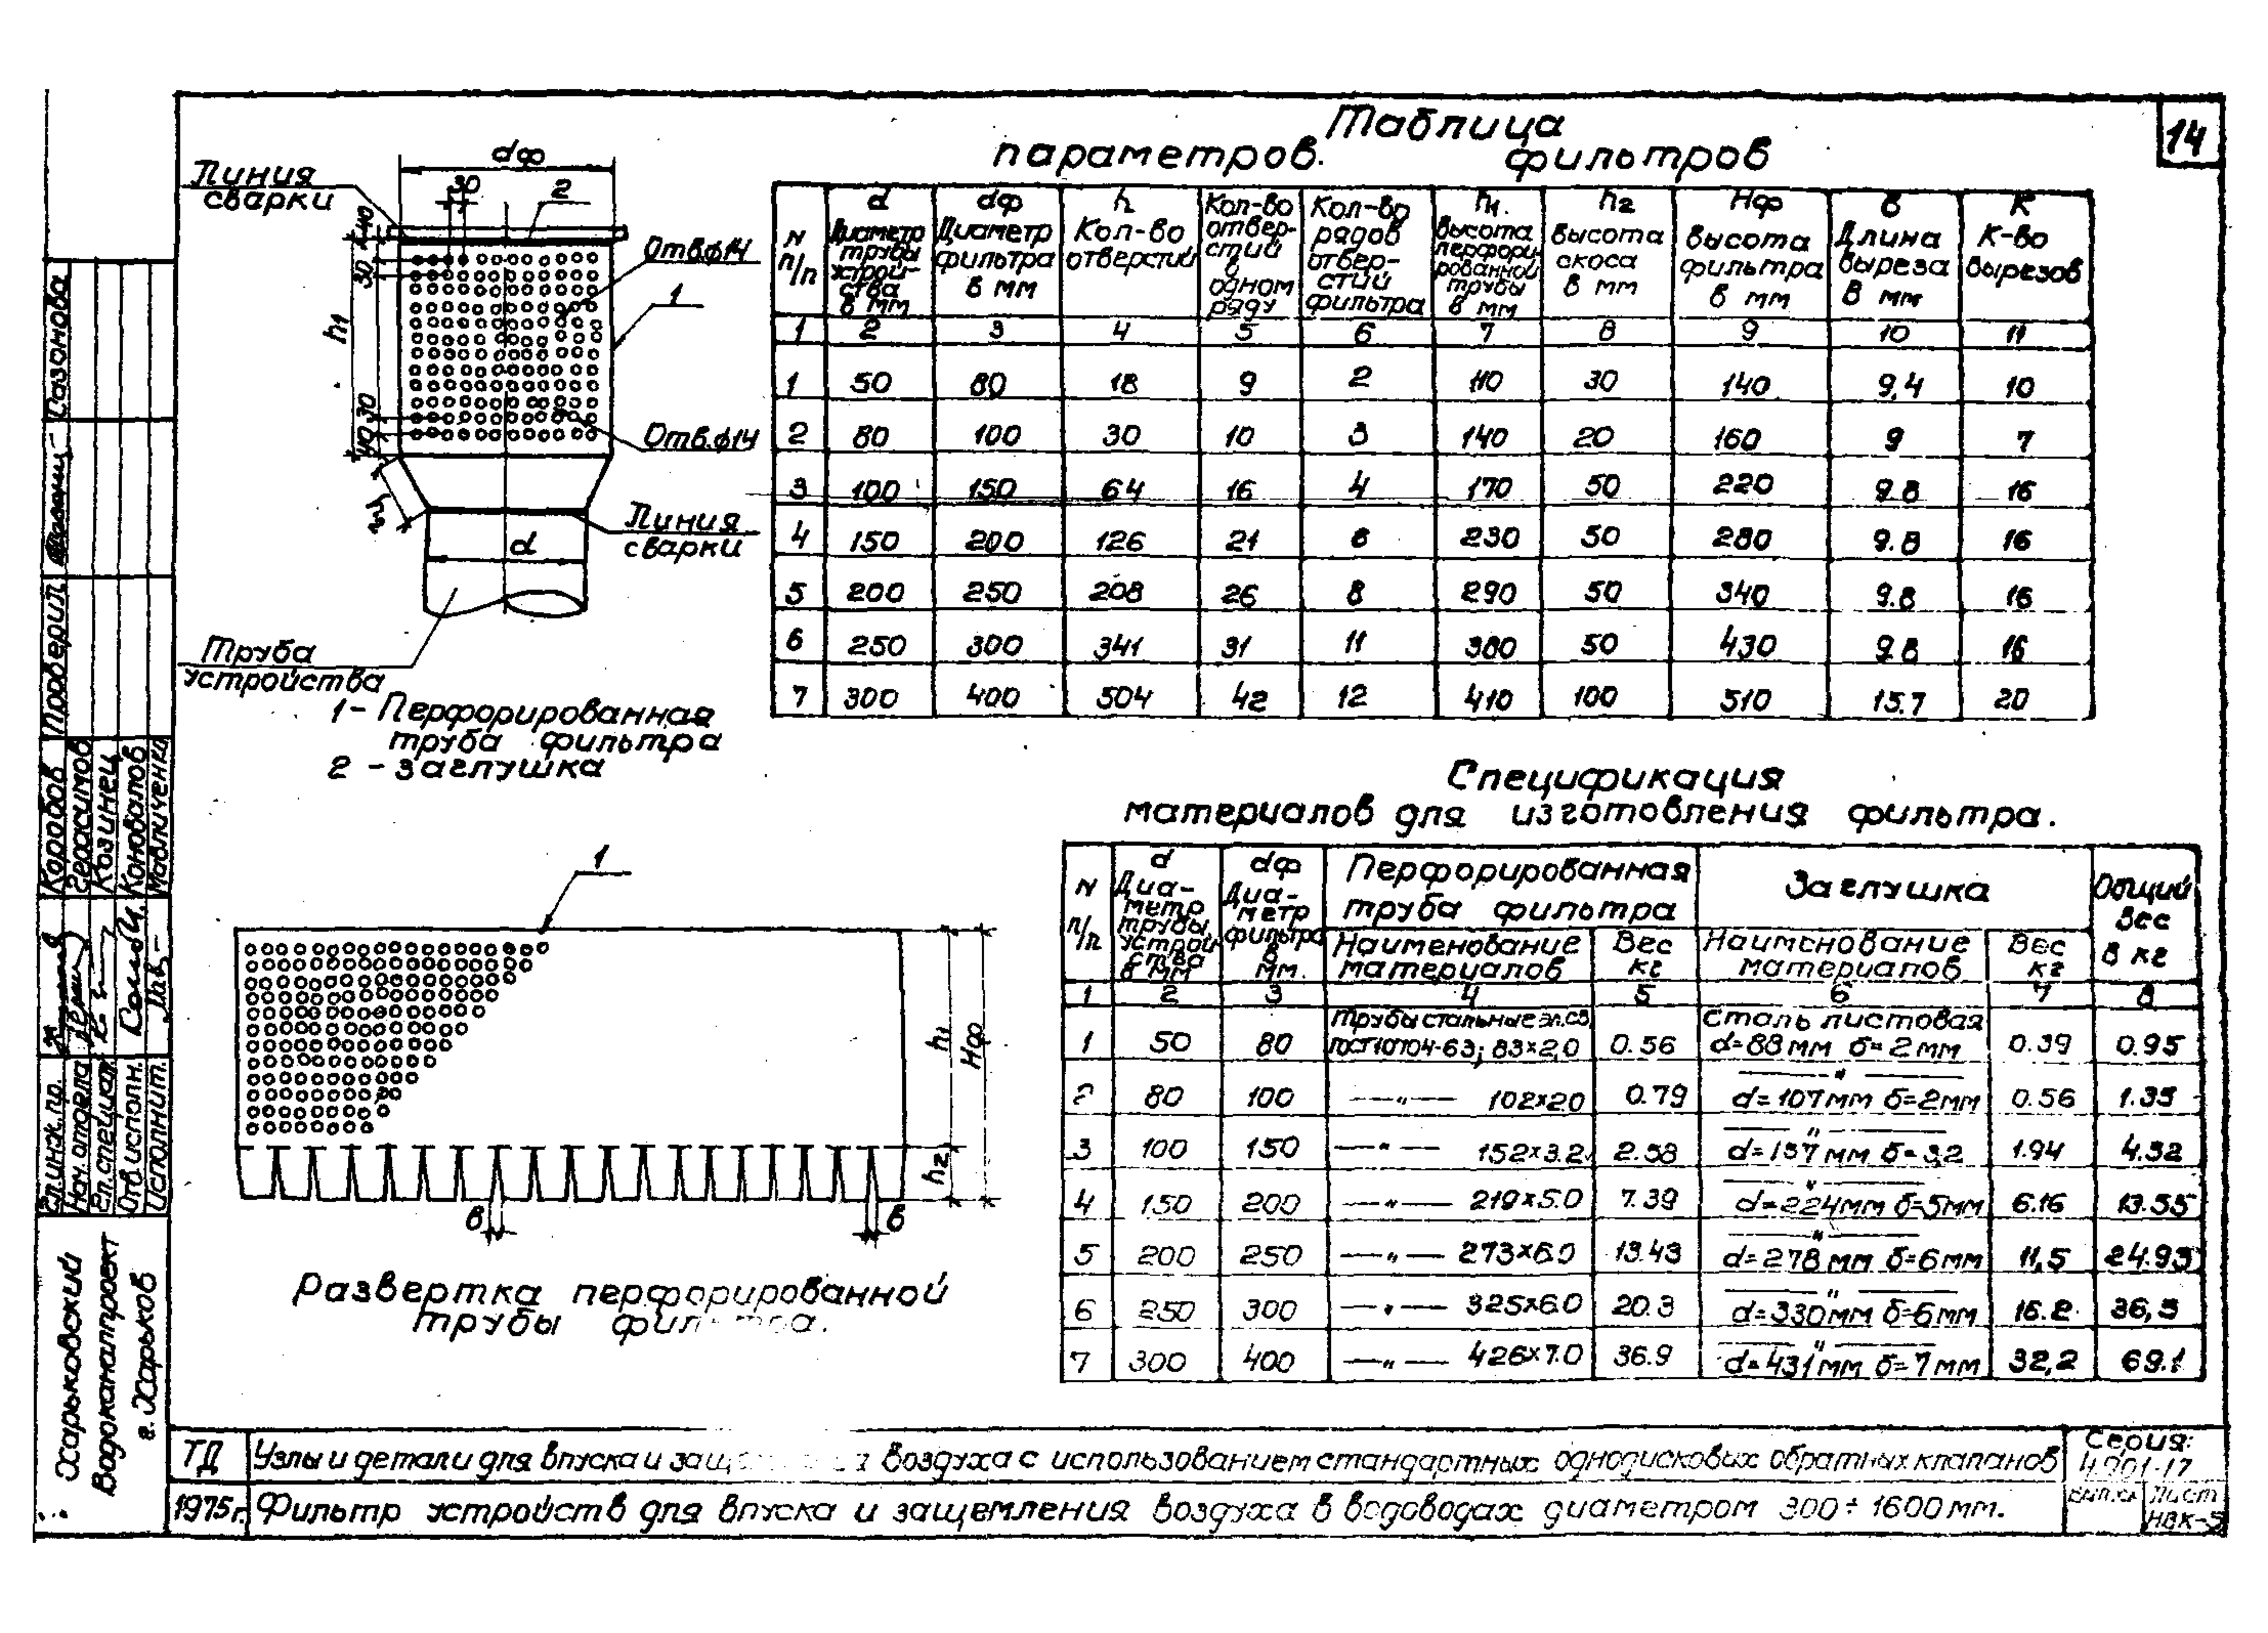 14
Таблица
параметров. фильтров
N п/п | d Диаметр трубы устрой-ства в мм | dф Диаметр фильтра в мм | h Кол-во отверстий | Кол-во отвер-стий в одном ряду | Кол-во рядов отвер-стий фильтра | h1. высота перфори-рованной трубы в мм | h2 высота скоса в мм | Hф высота фильтра в мм | в Длина выреза в мм | К К-во вырезов
1 2 3 4 5 6 7 8 9 10 11
1 50 80 18 9 2 110 30 140 9,4 10
2 80 100 30 10 3 140 20 160 9 7
3 100 150 64 16 4 170 50 220 9.8 16
4 150 200 126 21 6 230 50 280 9.8 16
5 200 250 208 26 8 290 50 340 9.8 16
6 250 300 341 31 11 380 50 430 9.8 16
7 300 400 504 42 12 410 100 510 15.7 20
Линия
сварки
dф
30
2
40
30
Отв.ф14
h1
1
30
40
Отв.ф14
Линия
сварки
d
Труба
устройства
1- Перфорированная
труба фильтра
2 - заглушка
1
h1
Hф
h2
в
в
Развертка перфорированной
трубы фильтра.
Спецификация
материалов для изготовления фильтра.
N п/п | d Диа-метр трубы устрой-ства в мм | dф Диа-метр фильтра в мм. | Перфорированная труба фильтра | Заглушка | Общий вес в кг
Наименование материалов | Вес кг | Наименование материалов | Вес кг
1 2 3 4 5 6 7 8
1 50 80 Трубы стальные эл.св. ГОСТ 10704-63; 83×2,0 0.56 Сталь листовая d=88мм б=2мм 0.39 0.95
2 80 100 —"— 102×2.0 0.79 —"— d=107мм б=2мм 0.56 1.35
3 100 150 —"— 152×3.2 2.38 —"— d=157мм б=3,2 1.94 4.32
4 150 200 —"— 219×5.0 7.39 —"— d=224мм б=5мм 6.16 13.55
5 200 250 —"— 273×6.0 13.43 —"— d=278мм б=6мм 11,5 24.93
6 250 300 —"— 325×6.0 20.3 —"— d=330мм б=6мм 16.2 36,5
7 300 400 —"— 426×7.0 36.9 —"— d=431мм б=7мм 32,2 69.1
Сазонова
Проверил
Коробов
Герасимов
Козинец
Коновалов
Мавличенко
Гл.инж.пр.
Нач.отдела
Гл.специал.
Отв.исполн.
Исполнит.
Харьковский
Водоканалпроект
г. Харьков
ТД
Узлы и детали для впуска и защ воздуха с использованием стандартных однодисковых обратных клапанов
Серия:
4.901-17
1975г.
Фильтр устройств для впуска и защемления воздуха в водоводах диаметром 300÷1600мм.
Лист
НВК-5